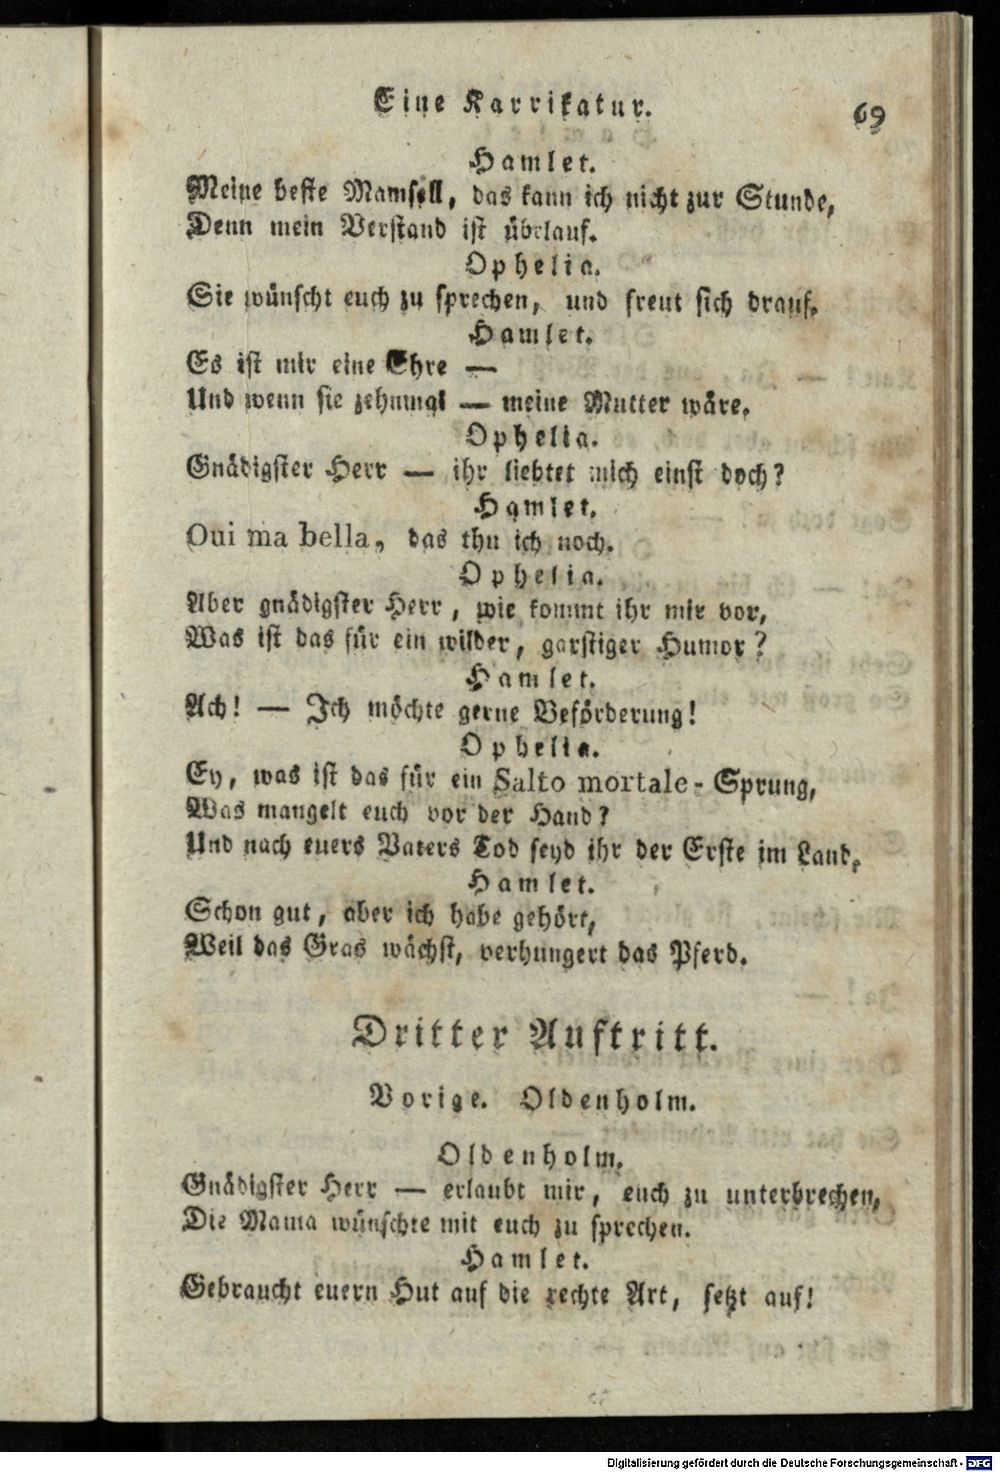 Eine Karrikatur.
69
Hamlet.
Meine beste Mamsell, das kann ich nicht zur Stunde,
Denn mein Verstand ist übelauf.
Ophelia.
Sie wünscht euch zu sprechen, und freut sich drauf.
Hamlet.
Es ist mir eine Ehre —
Und wenn sie zehnmal — meine Mutter wäre.
Ophelia.
Gnädigster Herr — ihr liebtet mich einst doch?
Hamlet.
Oui ma bella, das thu ich noch.
Ophelia.
Aber gnädigster Herr, wie kommt ihr mir vor,
Was ist das für ein wilder, garstiger Humor?
Hamlet.
Ach! — Ich möchte gerne Beförderung!
Ophelia.
Ey, was ist das für ein Salto mortale-Sprung,
Was mangelt euch vor der Hand?
Und nach euers Vaters Tod seyd ihr der Erste im Land.
Hamlet.
Schon gut, aber ich habe gehört,
Weil das Gras wächst, verhungert das Pferd.
Dritter Auftritt.
Vorige. Oldenholm.
Oldenholm.
Gnädigster Herr — erlaubt mir, euch zu unterbrechen,
Die Mama wünschte mit euch zu sprechen.
Hamlet.
Gebraucht euern Hut auf die rechte Art, setzt auf!
Digitalisierung gefördert durch die Deutsche Forschungsgemeinschaft - DFG